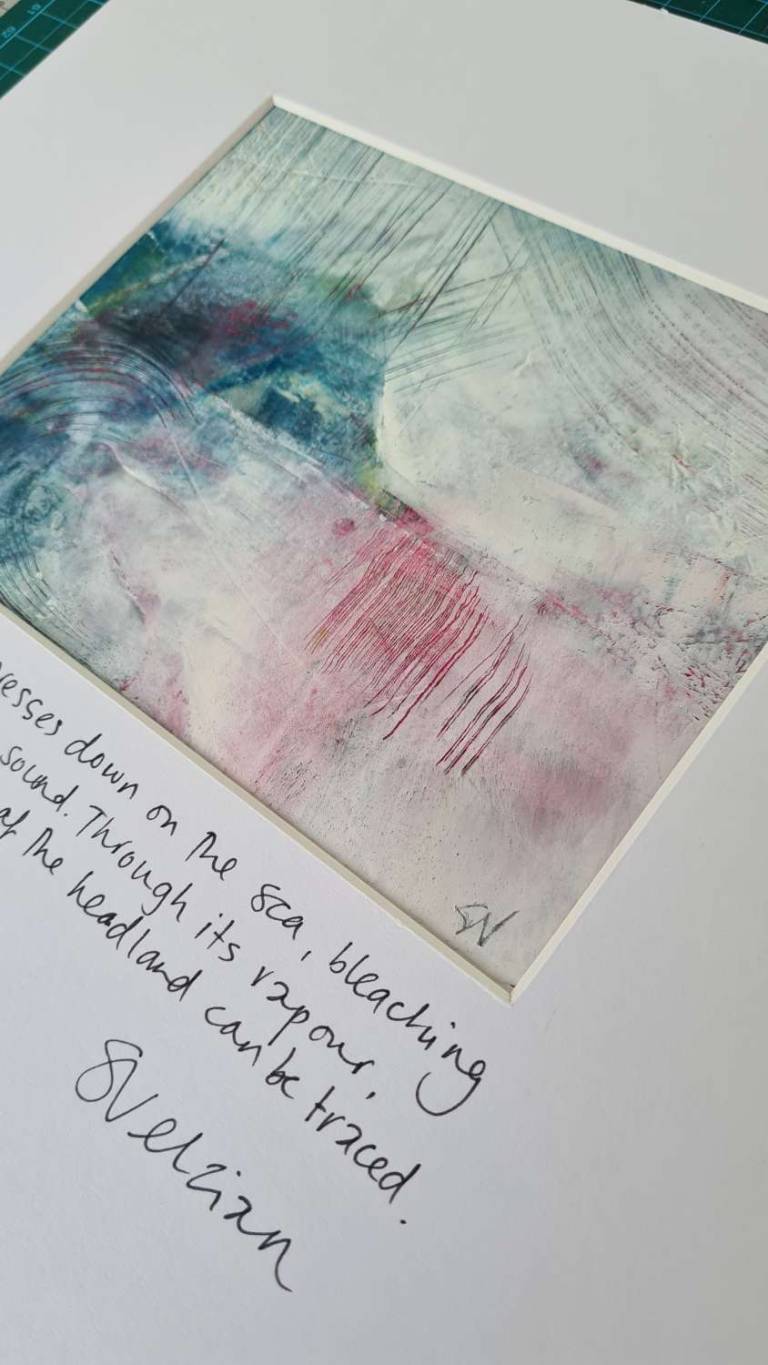 SV
down on the sea, bleaching
sound. Through its vapour,
of the headland can be traced.
SVelzian